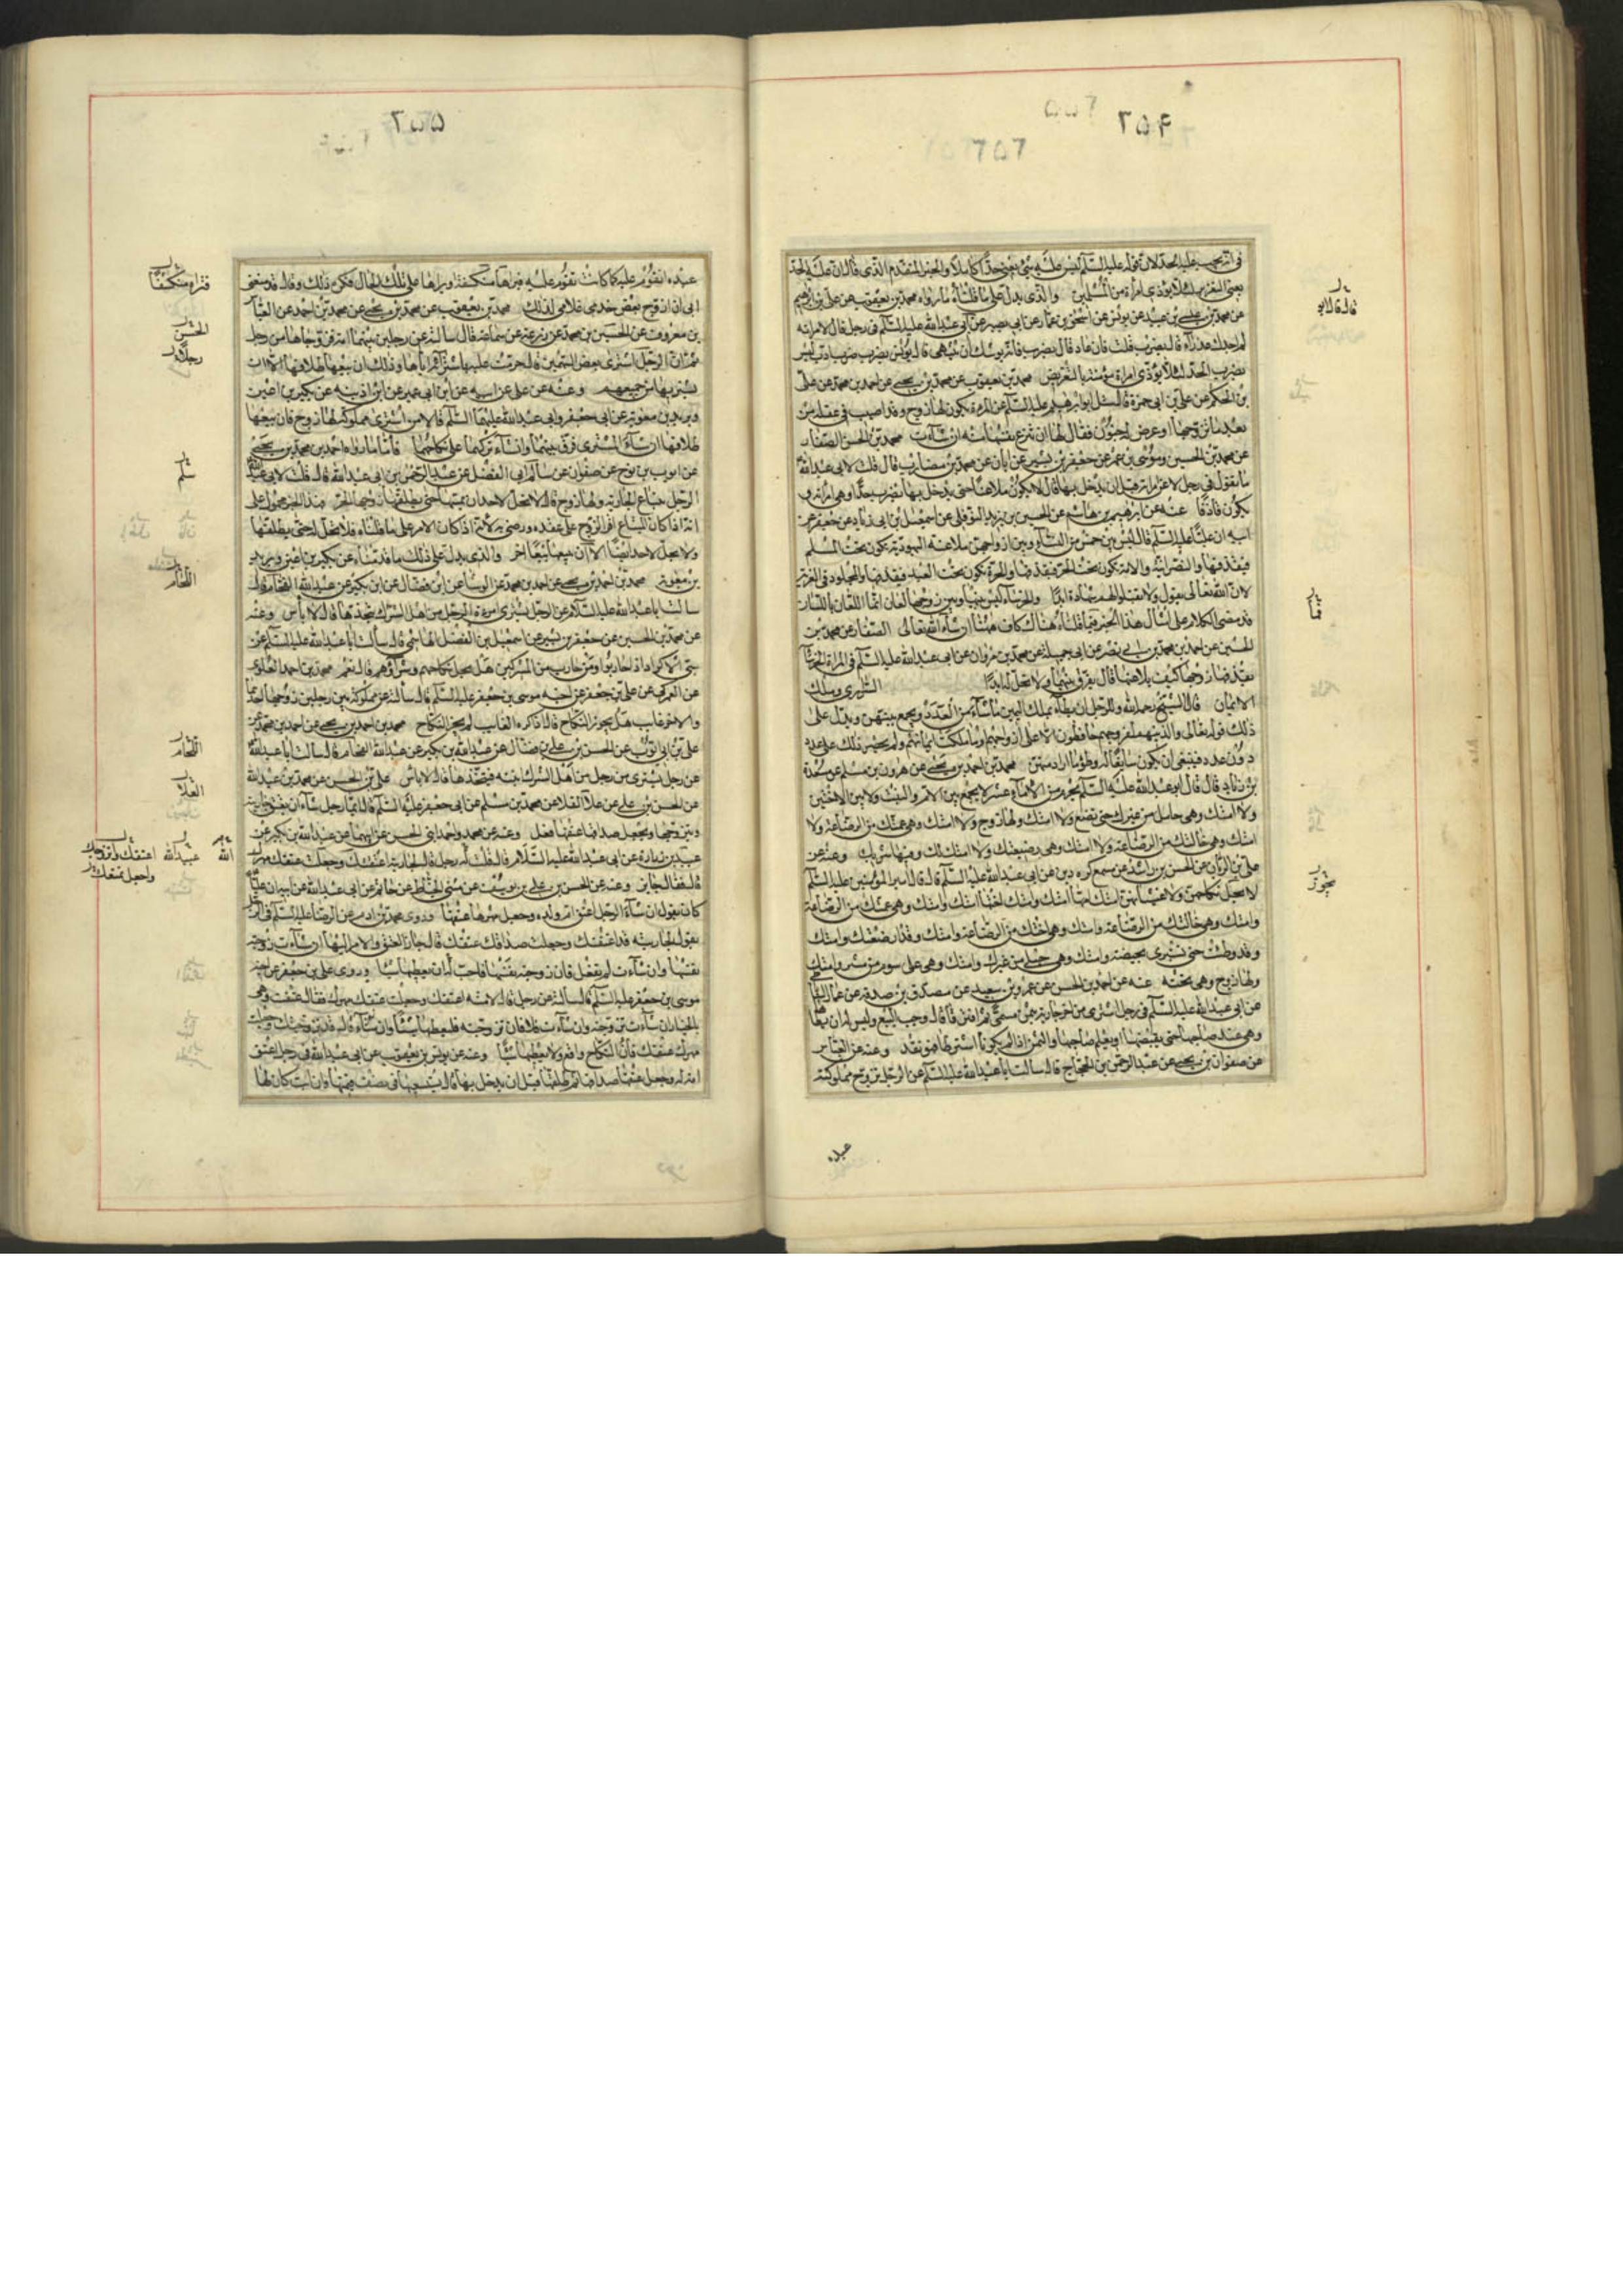 في انه يجب عليه الحد لان قوله عليه السلم ليس عليه شئ يعني حدا كاملا والخبر المتقدم الذي قال ان عليه الحد
يعني التعزير لئلا يؤذي امرأة من المسلمين والذي يدل على ما قلناه ما رواه محمد بن يعقوب عن علي بن ابرهيم
عن محمد بن عيسى بن عبيد عن يونس عن اسحق بن عمار عن ابي بصير عن ابي عبد الله عليه السلم في رجل قال لامراته
لم اجدك عذراء قال يضرب قلت فان عاد قال يضرب فانه يوشك ان ينتهي قال يونس يضرب ضرب ادب ليس
يضرب الحد لئلا يؤذي امراة مؤمنة بالتعريض محمد بن يعقوب عن محمد بن يحيى عن احمد بن محمد عن علي
بن الحكم عن علي بن ابي حمزة قال سئل ابو ابرهيم عليه السلم عن المرءة يكون لها زوج وقد اصيب في عقله من
بعد ما تزوجها او عرض له جنون فقال لها ان تنزع نفسها منه ان شاءت محمد بن الحسن الصفار
عن محمد بن الحسين وموسى بن عمر عن جعفر بن بشير عن ابان عن محمد بن مضارب قال قلت لابي عبد الله
ما يقول في رجل لاعن امراته قبل ان يدخل بها قال لا يكون ملاعنا حتى يدخل بها يضرب حدا وهي امراته و
يكون قاذفا عنه عن ابرهيم بن هاشم عن الحسين بن يزيد النوفلي عن اسمعيل بن ابي زياد عن جعفر عن
ابيه ان عليا عليه السلم قال ليس بين خمس من النساء وبين ازواجهن ملاعنة اليهودية يكون تحت المسلم
فيقذفها والنصرانية والامة تكون تحت الحر فيقذفها والحرة تكون تحت العبد فيقذفها والمجلود في الفرية
لان الله تعالى يقول ولا تقبلوا لهم شهادة ابدا والخرساء ليس بينها وبين زوجها لعان انما اللعان باللسان
قد مضى الكلام على امثال هذا الخبر فيما قلناه هناك كاف هيهنا ان شاء الله تعالى الصفار عن محمد بن
الحسين عن احمد بن محمد بن ابي نصر عن ابي جميلة عن محمد بن مروان عن ابي عبد الله عليه السلم في المراة الخرساء
يقذفها زوجها كيف يلاعنها قال يفرق بينهما ولا تحل له ابدا السراري وملك
الايمان قال الشيخ رحمه الله وللرجل ان يطأ بملك اليمين ما شاء من العدد ويجمع بينهن ويدل على
ذلك قوله تعالى والذينهم لفروجهم حافظون الا على ازواجهم او ما ملكت ايمانهم ولم يحصر ذلك على عدد
دون عدد فينبغي ان يكون سايغا له وطؤ ما اراد منهن محمد بن احمد بن يحيى عن هارون بن مسلم عن مسعدة
بن زياد قال قال ابو عبد الله عليه السلم يحرم من الاماء عشر لا يجمع بين الام والبنت ولا بين الاختين
ولا امتك وهي حامل من غيرك حتى تضع ولا امتك ولها زوج ولا امتك وهي عمتك من الرضاعة ولا
امتك وهي خالتك من الرضاعة ولا امتك وهي رضيعتك ولا امتك ولك وفيها شريك وعنه عن
علي بن الريان عن الحسن بن راشد عن مسمع كردين عن ابي عبد الله عليه السلم قال قال امير المؤمنين عليه السلم
لا يحل نكاحهن ولا غشيانهن امتك امها امتك وامتك اختها امتك وامتك وهي عمتك من الرضاعة
وامتك وهي خالتك من الرضاعة وامتك وهي اختك من الرضاعة وامتك وقد ارضعتك وامتك
وقد وطئت حتى تستبرئ بحيضة وامتك وهي حبلى من غيرك وامتك وهي على سوم من مشتر وامتك
ولها زوج وهي تحته عنه عن احمد بن الحسن عن عمرو بن سعيد عن مصدق بن صدقة عن عمار الساباطي
عن ابي عبد الله عليه السلم في رجل اشترى من اخر جارية بثمن مسمى ثم افترقا قال وجب البيع وليس له ان يطأها
وهي عند صاحبها حتى يقبضها او يعلم صاحبها والثمن اذا لم يكونا اشترطا فهو نقد وعنه عن العباس
عن صفوان بن يحيى عن عبد الرحمن بن الحجاج قال سالت ابا عبد الله عليه السلم عن الرجل يزوج مملوكته
عبده
عبده اتقوم عليه كما كانت تقوم عليه فتراه منكشفا او يراها على تلك الحال فكره ذلك وقال قد منعني
ابي ان ازوج بعض خدمي غلامي لذلك محمد بن يعقوب عن محمد بن يحيى عن محمد بن احمد عن العباس
بن معروف عن الحسين بن محمد عن زرعة عن سماعة قال سالته عن رجلين بينهما امة فزوجاها من رجل
ثم ان الرجل اشترى بعض السهمين قال حرمت عليه باشترائه اياها وذلك ان بيعها طلاقها الا ان
يشتريها من جميعهم وعنه عن علي عن ابيه عن ابن ابي عمير عن ابن اذينه عن بكير بن اعين
وبريد بن معوية عن ابي جعفر وابي عبد الله عليهما السلم قالا من اشترى مملوكة لها زوج فان بيعها
طلاقها ان شاء المشتري فرق بينهما وان شاء تركهما على نكاحهما فاما ما رواه احمد بن محمد بن يحيى
عن ايوب بن نوح عن صفوان عن سالم ابي الفضل عن عبد الرحمن بن ابي عبد الله قال قلت لابي عبد الله
الرجل يبتاع الجارية ولها زوج قال لا يحل لاحد ان يمسها حتى يطلقها زوجها الحر فهذا الخبر محمول على
انه اذا كان المبتاع اقر الزوج على عقده ورضي به لانه اذا كان الامر على ما قلناه فلا يحل له حتى يطلقها
ولا يحل لاحد ايضا الا ان يبيعها بيعا اخر والذي يدل على ذلك ما قدمناه عن بكير بن اعين وبريد
بن معوية محمد بن احمد بن يحيى عن احمد بن محمد عن الوشا عن ابن فضال عن ابن بكير عن عبد الله اللحام قال
سالت ابا عبد الله عليه السلام عن الرجل يشتري امرءة الرجل من اهل الشرك يتخذها قال لا باس وعنه
عن محمد بن الحسين عن جعفر بن بشير عن اسمعيل بن الفضل الهاشمي قال سالت ابا عبد الله عليه السلم عن
سبي الاكراد اذا حاربوا ومن حارب من المشركين هل يحل نكاحهم وشراؤهم قال نعم محمد بن احمد العلوي
عن العمركي عن علي بن جعفر عن اخيه موسى بن جعفر عليه السلم قال سالته عن مملوكة بين رجلين زوجها احدهما
والاخر غايب هل يجوز النكاح قال اذا كره الغايب لم يجز النكاح محمد بن احمد بن يحيى عن احمد بن محمد عن
علي بن ابي ايوب عن الحسن بن علي بن فضال عن عبد الله بن بكير عن عبد الله اللحام قال سالت ابا عبد الله
عن رجل يشتري من رجل من اهل الشرك ابنته فيتخذها قال لا باس علي بن الحسن عن محمد بن عبد الله
عن الحسن بن علي عن علاء القلا عن محمد بن مسلم عن ابي جعفر عليه السلم قال ايما رجل شاء ان يعتق جاريته
ويتزوجها ويجعل صداقها عتقها فعل وعنه عن محمد واحمد ابني الحسن عن ابيهما عن عبد الله بن بكير عن
عبيد بن زرارة عن ابي عبد الله عليه السلام قال قلت له رجل قال لجاريته اعتقتك وجعلت عتقك مهرك
قال فقال جايز وعنه عن الحسن بن علي بن يوسف عن مثنى الحناط عن حاتم عن ابي عبد الله عن ابيه ان عليا
كان يقول ان شاء الرجل اعتق ام ولده وجعل مهرها عتقها وروى محمد بن ادم عن الرضا عليه السلم في الرجل
يقول لجاريته قد اعتقتك وجعلت صداقك عتقك قال جاز العتق والامر اليها ان شاءت زوجته
نفسها وان شاءت لم تفعل فان زوجته نفسها فاحب له ان يعطيها شيئا وروى علي بن جعفر عن اخيه
موسى بن جعفر عليه السلم قال سالته عن رجل قال لامته اعتقتك وجعلت عتقك مهرك فقال عتقت وهي
بالخيار ان شاءت تزوجته وان شاءت فلا فان تزوجته فليعطها شيئا وان شاء قال قد تزوجتك وجعلت
مهرك عتقك فان النكاح واقع ولا يعطيها شيئا وعنه عن يونس بن يعقوب عن ابي عبد الله في رجل اعتق
امة له وجعل عتقها صداقها ثم طلقها قبل ان يدخل بها قال يستسعيها في نصف قيمتها وان ابت كان لها